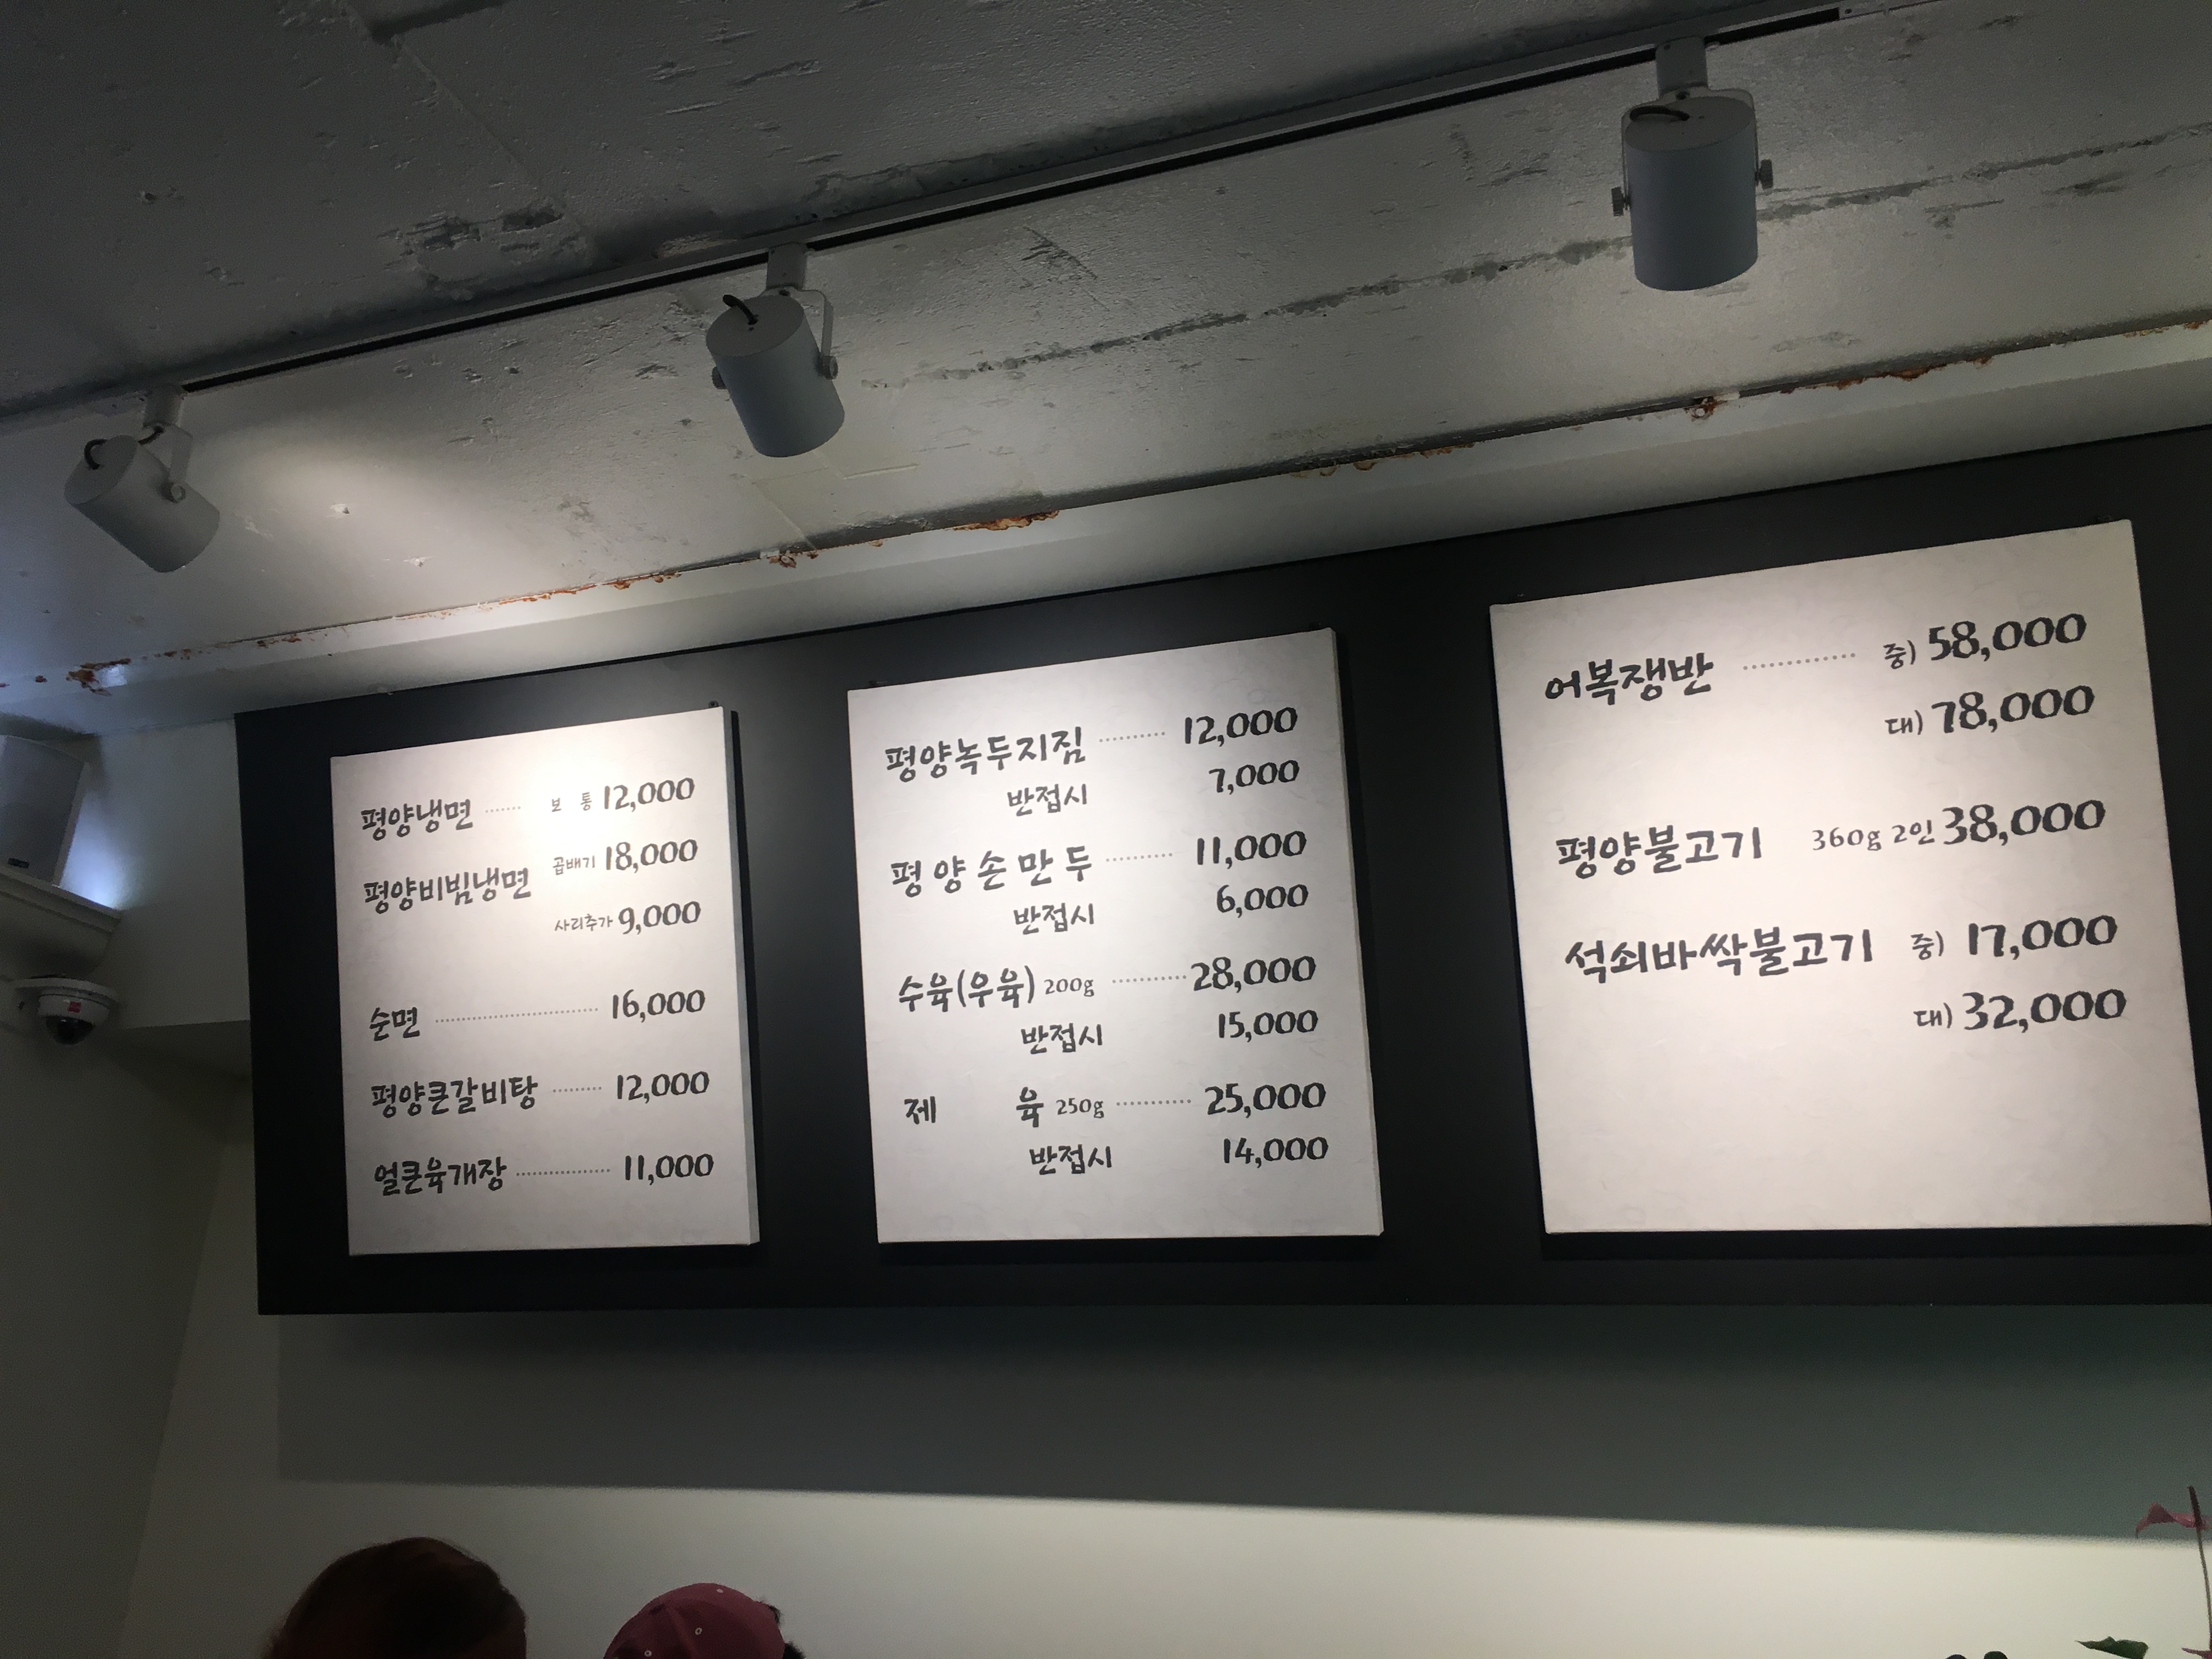 평양냉면 ······· 보 통 12,000
곱배기 18,000
평양비빔냉면
사리추가 9,000
순면 ························ 16,000
평양큰갈비탕 ········· 12,000
얼큰육개장 ················ 11,000
평양녹두지짐 ··········· 12,000
반접시 7,000
평양손만두 ··········· 11,000
반접시 6,000
수육(우육) 200g ············ 28,000
반접시 15,000
제 육 250g ············ 25,000
반접시 14,000
어복쟁반 ············· 중) 58,000
대) 78,000
평양불고기 360g 2인 38,000
석쇠바싹불고기 중) 17,000
대) 32,000